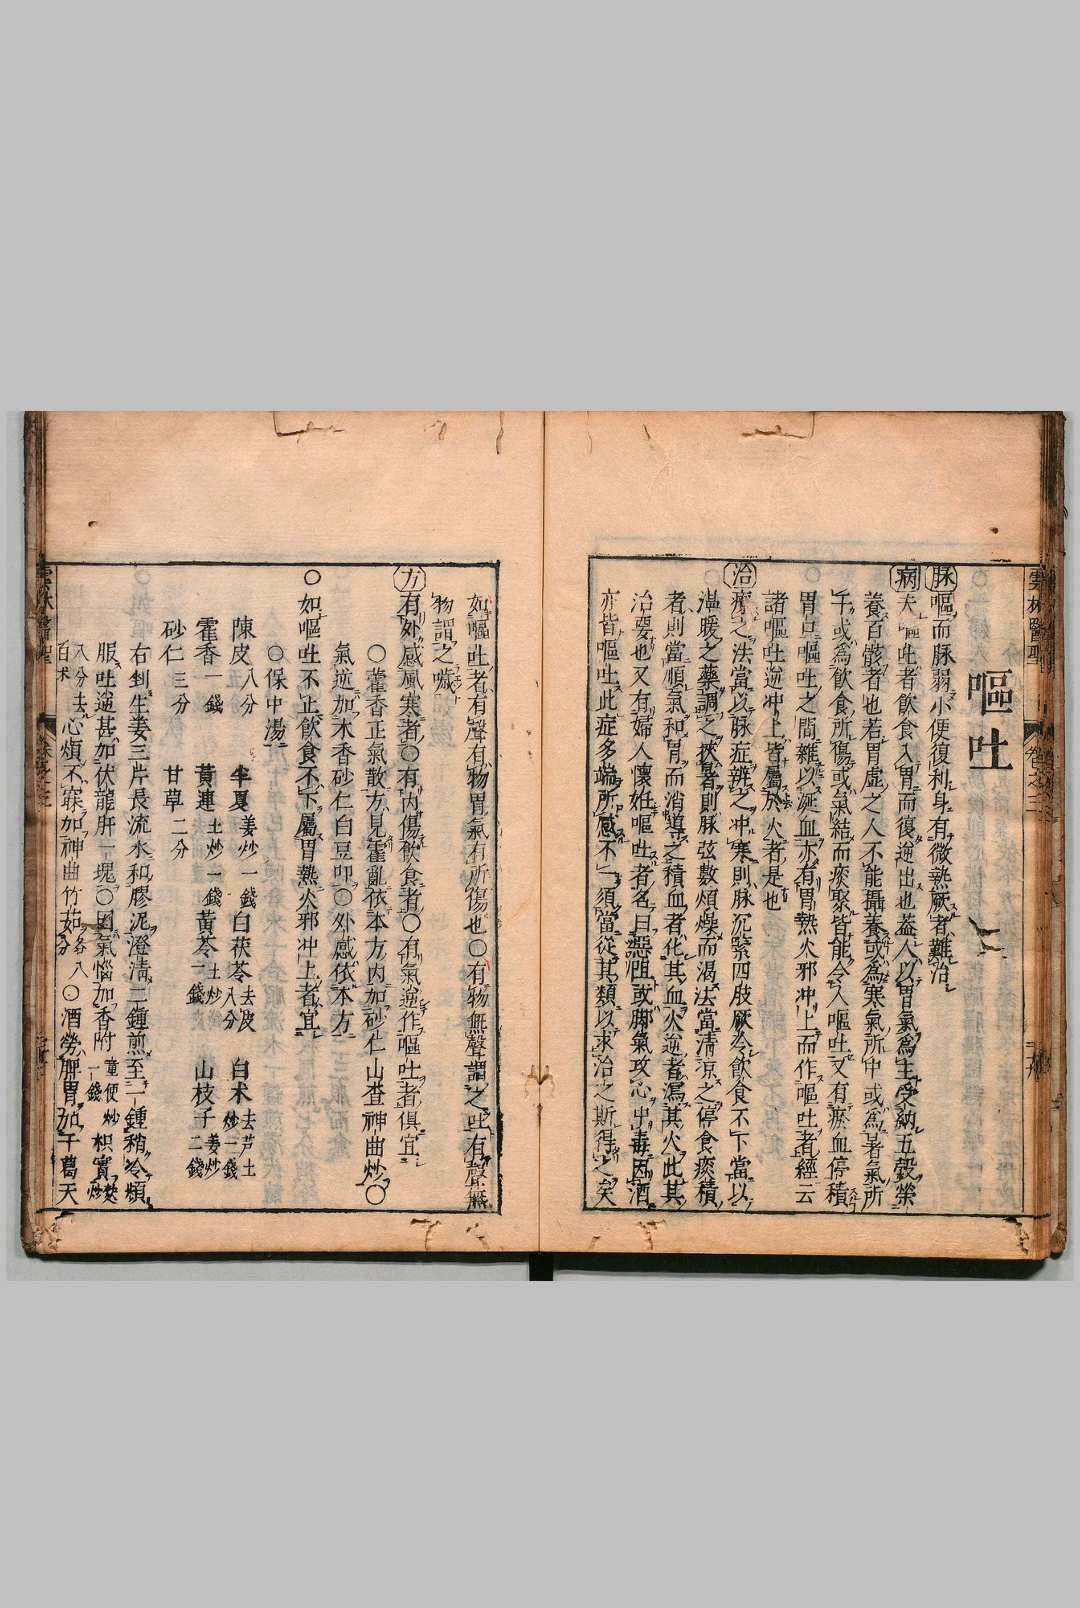 雲林醫聖
卷之三
嘔吐
脉嘔而脉弱小便復利身有微熱厥者難治
病夫嘔吐者飲食入胃而復逆出也蓋人以胃氣為主受納五穀榮
養百骸者也若胃虛之人不能攝養或為寒氣所中或為暑氣所
干或為飲食所傷或氣結而痰聚皆能令人嘔吐又有瘀血停積
胃口嘔吐之間雜以涎血亦有胃熱火邪冲上而作嘔吐者經云
諸嘔吐逆冲上皆屬於火者是也
治療之法當以脉症辨之冲寒則脉沉緊四肢厥冷飲食不下當以
溫暖之藥調之挾暑者則脉弦數煩燥而渴法當清凉之停食痰積
者則當順氣和胃而消導之積血者化其血火逆者瀉其火此其
治要也又有婦人懷妊嘔吐者名曰惡阻或脚氣攻心出毒因酒
亦皆嘔吐此症多端所感不一須當從其類以求治之斯得之矣
如嘔吐者有聲有物胃氣有所傷也〇有物無聲謂之吐有聲無
物謂之噦
方有外感風寒者〇有内傷飲食者〇有氣逆作嘔吐者俱宜
〇藿香正氣散方見霍亂依本方内加砂仁山查神曲炒〇
氣逆加木香砂仁白豆叩〇外感依本方
〇如嘔吐不止飲食不下屬胃熱火邪冲上者宜
〇保中湯
陳皮八分 半夏姜炒一錢 白茯苓去皮八分 白术去芦土炒一錢
霍香一錢 黃連土炒一錢 黃芩土炒一錢 山枝子姜炒二錢
砂仁三分 甘草二分
右剉生姜三片長流水和膠泥澄清二鍾煎至一鍾稍冷頻
服吐逆甚加伏龍肝一塊〇因氣惱加香附童便炒一錢枳實麸炒
八分去白术心煩不寐加神曲竹茹各八分〇酒勞脾胃加干葛天